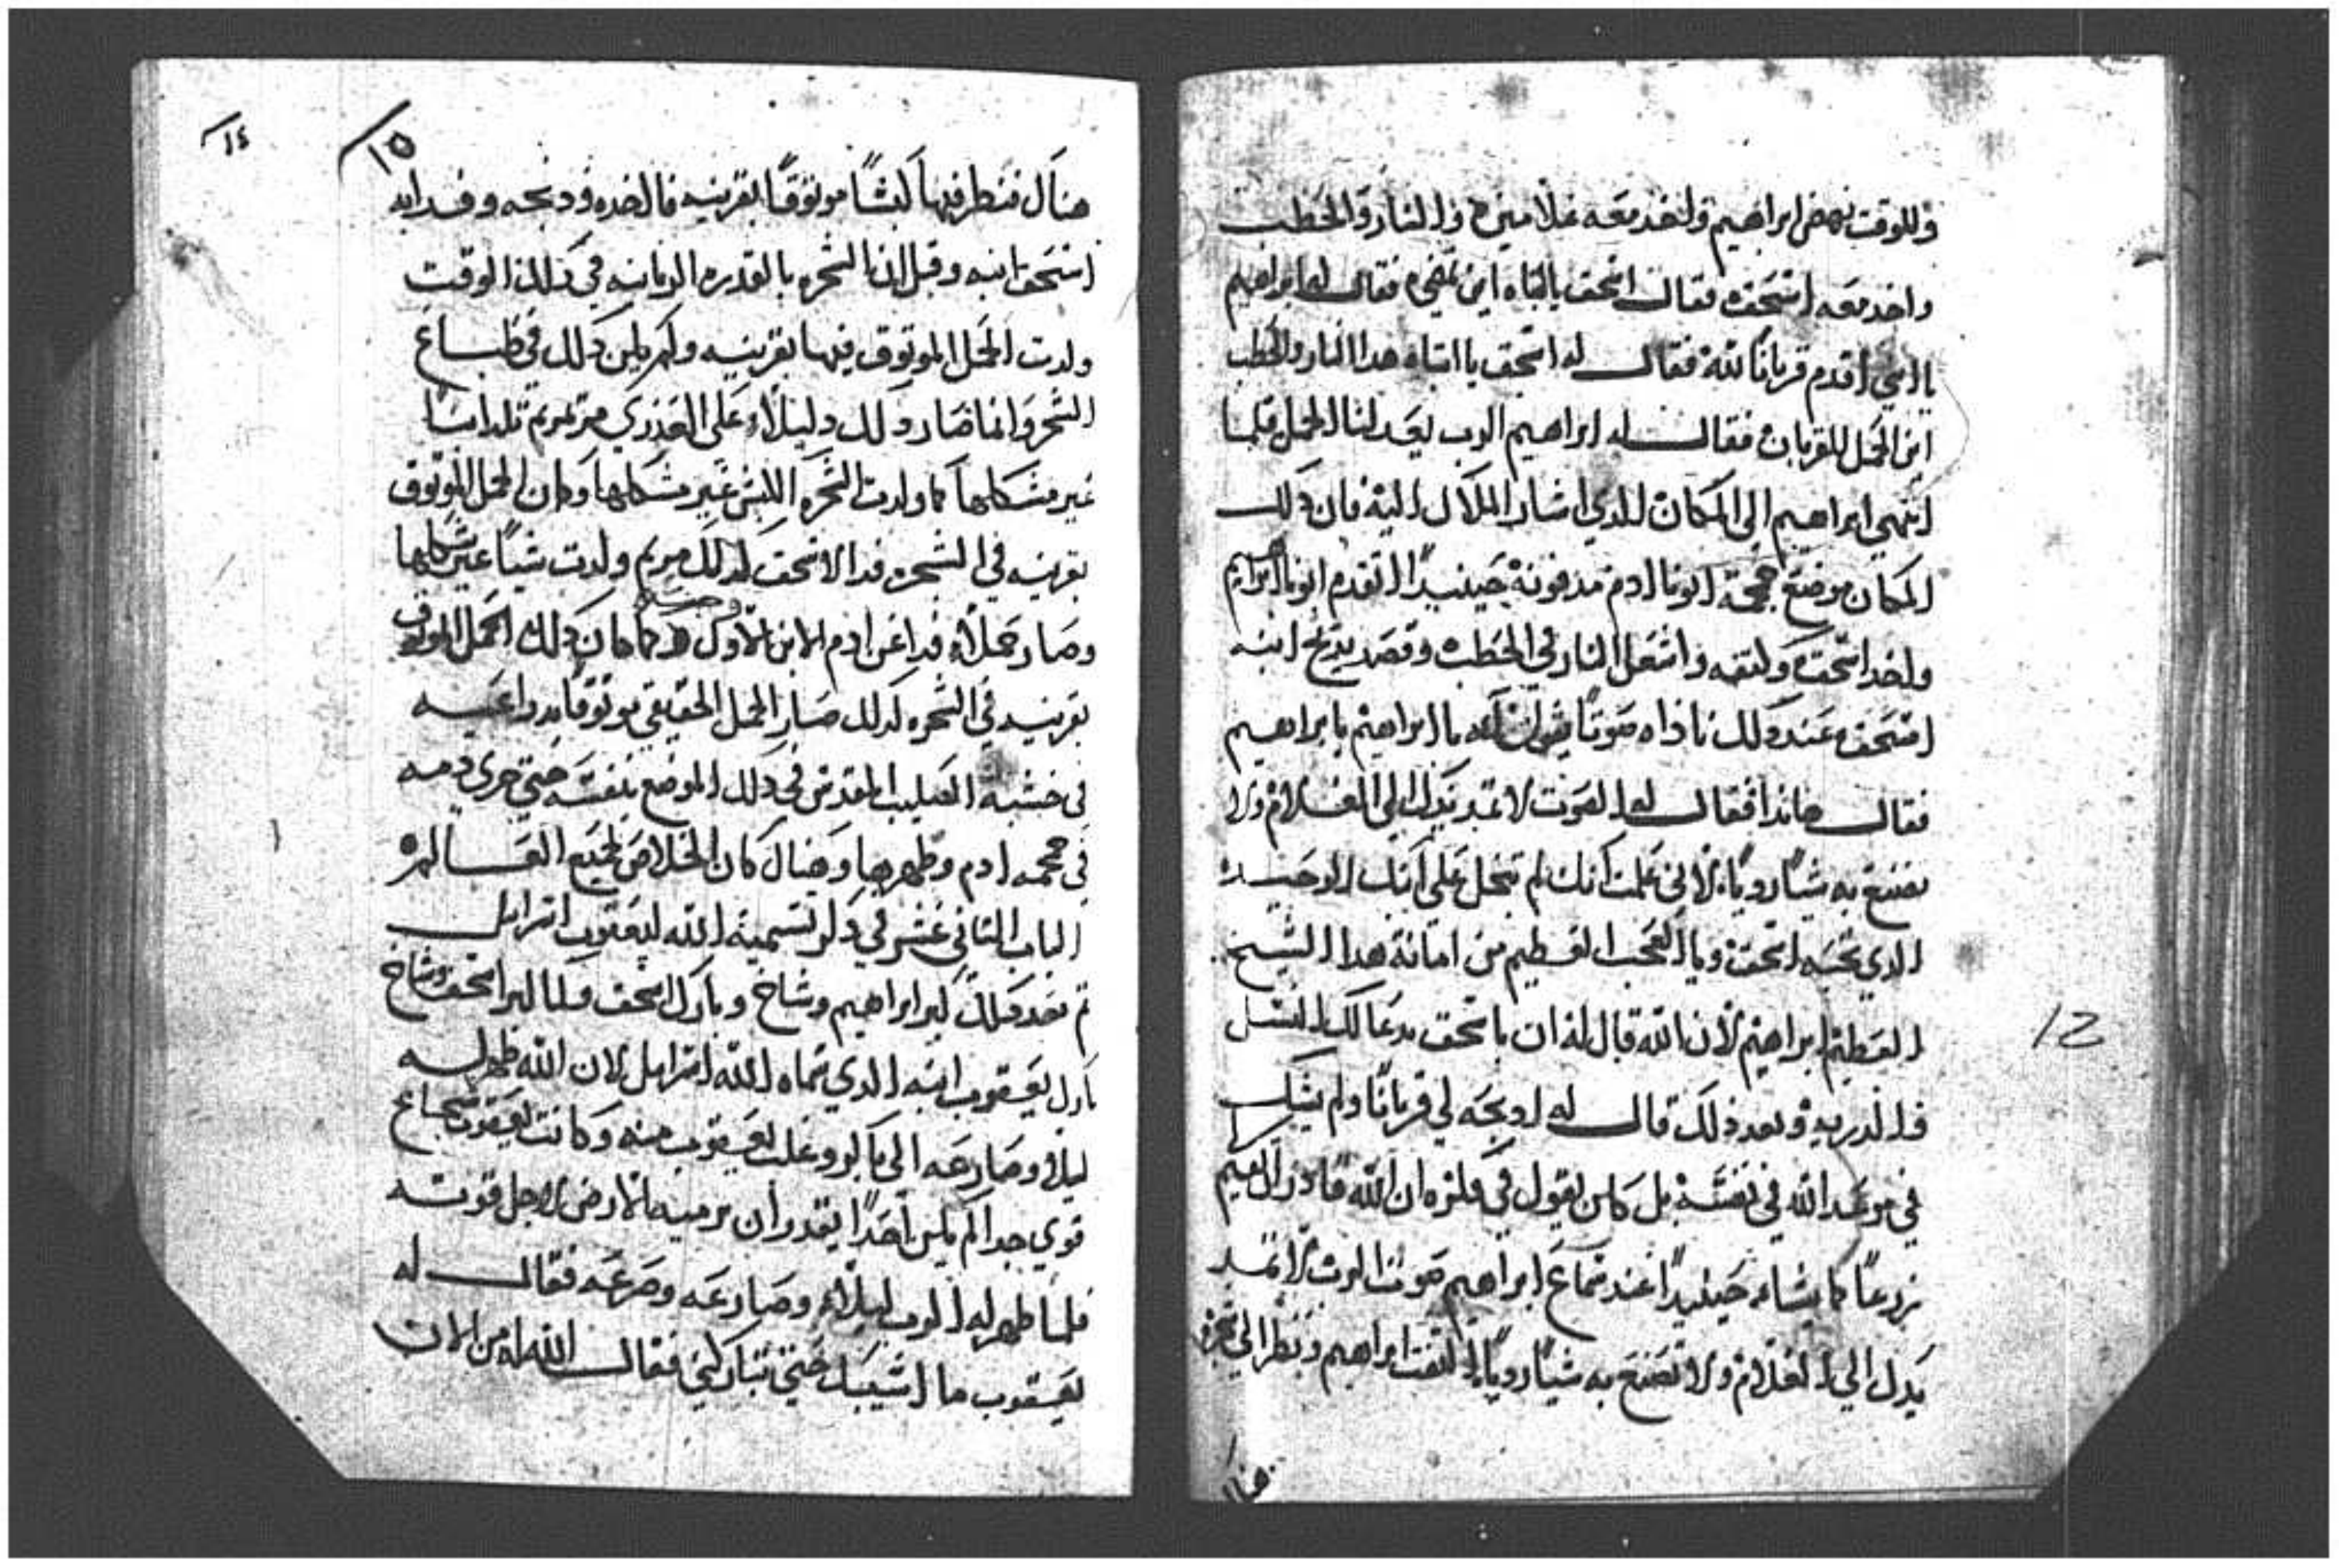 وللوقت نهض ابراهيم واخذ معه غلامين والنار والحطب
واخد معه اسحق فقال اسحق يا ابتاه اين تمضي فقال له ابراهيم
يا ابني اقدم قربانا لله فقال له اسحق يا ابتاه هدا النار والحطب
اين الحمل للقربان فقال له ابراهيم الرب يعد لنا الحمل فلما
انتهي ابراهيم الي المكان الدي اشار الملاك اليه فان دلك
المكان موضع جمجمة ابونا ادم مدفونة حينيدا تقدم ابونا ابراهيم
واخد اسحق وكتفه واشعل النار في الحطب وقصد يدبح ابنه
اسحق عند دلك ناداه صوتا يقول له يا ابراهيم يا ابراهيم
فقال هاندا فقال له الصوت لا تمد يدك الي الغلام ولا
تصنع به شيا رديا لاني علمت انك لم تبخل علي ابنك الوحيد
الدي تحبه اسحق ويا العجب العظيم من امانة هدا الشيخ
العظيم ابراهيم لان الله قال له ان باسحق يدعا لك النسل
والدريه وبعد ذلك قال له ادبحه لي قربانا ولم يشك
في موعد الله في نفسه بل كان يقول في فكره ان الله قادر ان يقيم
زرعا كما يشاء حينيدا عند سماع ابراهيم صوت الرب لا تمد
يدك الي الغلام ولا تصنع به شيا رديا التفت ابراهيم ونظر الي شجرة
هناك
١٤
١٥
هناك فنظر فيها كبشا موتوقا بقرنيه فاخده ودبحه وفدا به
اسحق ابنه وقبل ان الشجره بالقدره الربانيه في ذلك الوقت
ولدت الحمل الموتوق فيها بقرنيه ولم يكن دلك في طباع
الشجر وانما صار دلك دليلا علي العدري مرتمريم تلد ابنا
غير مشكلها كما ولدت الشجره الكبش غير مشكلها وكان الحمل الموتوق
بقرنيه في الشجره فدا لاسحق كدلك مريم ولدت شيا غير شكلها
وصار حملا فدا عن ادم الابن الاول وكما كان دلك الحمل الموتوق
بقرنيه في الشجره كدلك صار الحمل الحقيقي موتوقا بدراعيه
في خشبة الصليب المقدس في دلك الموضع بنفسه حتي جري دمه
في جمجمه ادم وطهرها وهناك كان الخلاص لجميع العالم
الباب التاني عشر في دكر تسمية الله ليعقوب اسرايل
تم بعد دلك كبر ابراهيم وشاخ وبارك اسحق ولما كبر اسحق وشاخ
بارك يعقوب ابنه الدي سماه الله اسرايل لان الله ظهر له
ليلا وصارعه الي باكر وغلب يعقوب منه وكانت يعقوب شجاع
قوي جدا لم يكن احدا يقدر ان يرميه الارض لاجل قوته
فلما ظهر له الرب ليلا وصارعه وصرعه فقال له
يعقوب ما اسيبك حتي تباركني فقال الله له من الان
12